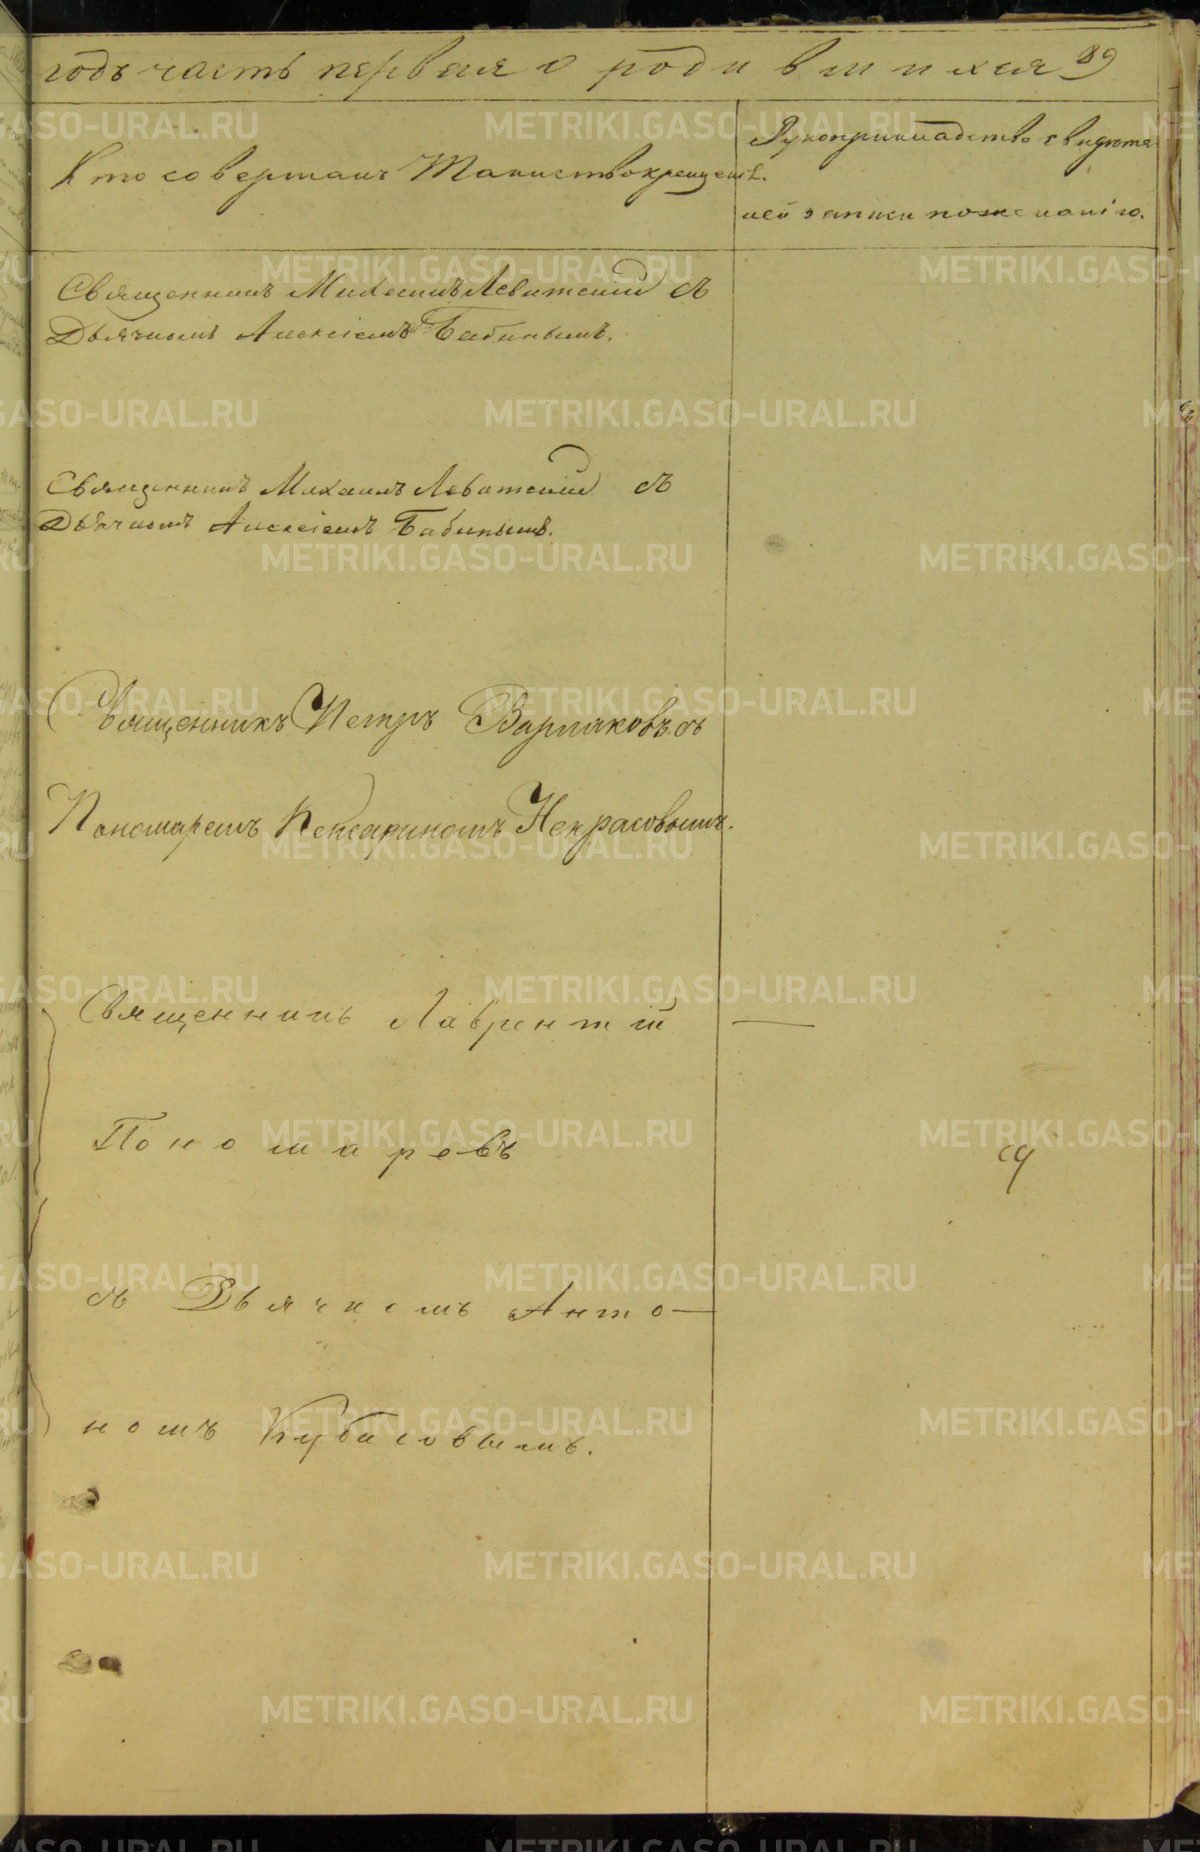 годъ часть первая о родившихся 89
Кто совершалъ Таинство крещенiя.
Рукоприкладство свидѣте
лей записи по желанію.
Священникъ Михаилъ Левитскій съ
Дьячкомъ Алексіемъ Бабинымъ.
Священникъ Михаилъ Левитскій съ
Дьячкомъ Алексіемъ Бабинымъ.
Священникъ Петръ Варлаковъ съ
Пономаремъ Кенсариномъ Некрасовымъ.
Священникъ Лаврентій
Пономаревъ
съ Дьячкомъ Анто-
номъ Кубасовымъ.
METRIKI.GASO-URAL.RU